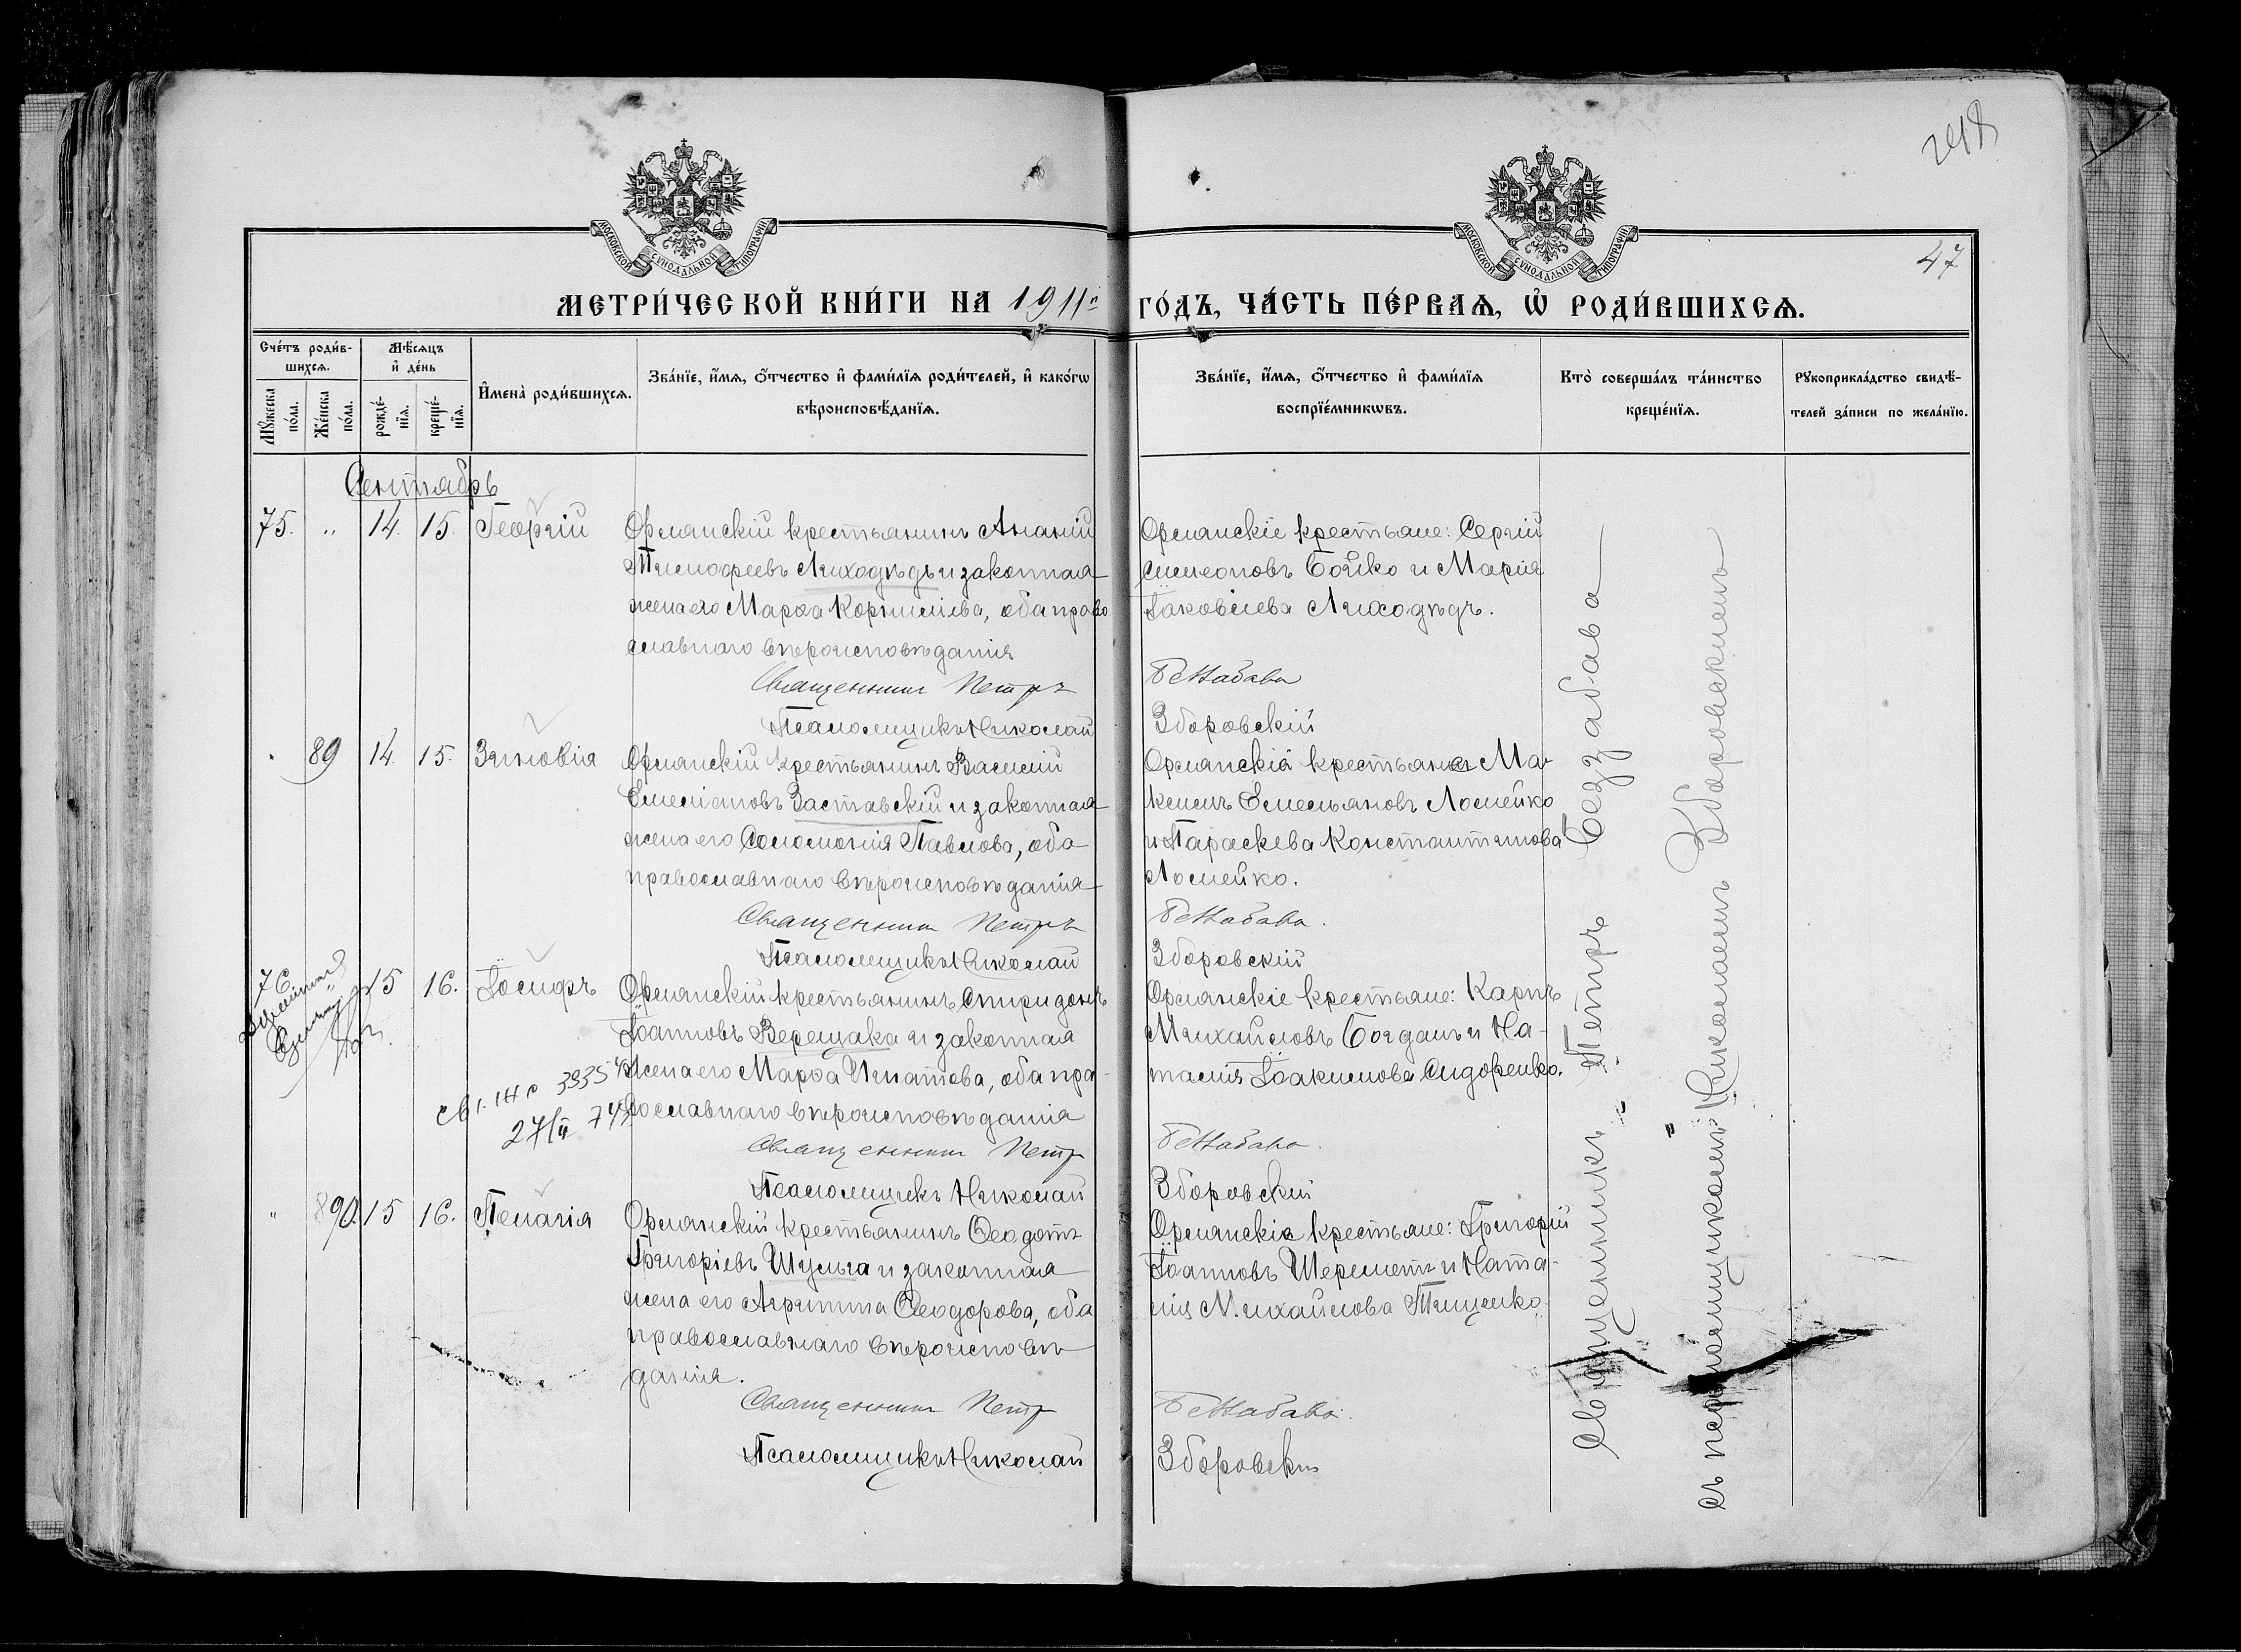 248
47
МОСКОВСКОЙ СѴНОДАЛЬНОЙ ТИПОГРАФІИ
МОСКОВСКОЙ СѴНОДАЛЬНОЙ ТИПОГРАФІИ
МЕТРИ́ЧЕСКОЙ КНИ́ГИ НА 1911 й ГО́ДЪ, ЧА́СТЬ ПЕ́РВАѦ, Ѡ҆ РОДИ́ВШИХСѦ.
Сче́тъ роди́в-
шихсѧ.
Мѣ́сѧцъ
и҆ де́нь
Мꙋ́жеска по́ла.
Же́нска по́ла.
рожде́-
нїѧ.
креще́-
нїѧ.
И҆мена̀ роди́вшихсѧ.
Зва́нїе, и҆́мѧ, ѻ҆́тчество и҆ фами́лїѧ роди́телей, и҆ како́гѡ
вѣроисповѣ́данїѧ.
Зва́нїе, и҆́мѧ, ѻ҆́тчество и҆ фами́лїѧ
воспрїе́мникѡвъ.
Кто̀ соверша́лъ та́инство
креще́нїѧ.
Рꙋкоприкла́дство свидѣ́-
телей за́писи по жела́нїю.
Сентябрь
75. " 14. 15. Георгій
Орлянскій крестьянинъ Ананій
Тимофеевъ Лиходѣдъ и законная
жена его Марѳа Корнилiева, оба право
славнаго вѣроисповѣданія
Священникъ Петръ
Псаломщикъ Николай
Орлянскіе крестьяне: Сергій
Симеоновъ Бойко и Марія
Іаковлева Лиходѣдъ.
Беззабава
Зборовскій
" 89 14. 15. Зиновія
Орлянскій крестьянинъ Василій
Емеліановъ Заставскій и законная
жена его Соломонія Павлова, оба
православнаго вѣроисповѣданія
Священникъ Петръ
Псаломщикъ Николай
Орлянскіе крестьяне Ма-
ксимъ Емельяновъ Ломейко
и Параскева Константинова
Ломейко.
Беззабава.
Зборовскій
76. " 15 16. Іосифъ
Орлянскій крестьянинъ Спиридонъ
Іоанновъ Верещака и законная
жена его Марѳа Игнатова, оба пра-
вославнаго вѣроисповѣданія
Священникъ Петръ
Псаломщикъ Николай
Орлянскіе крестьяне: Карпъ
Михайловъ Богданъ и На-
талія Іоакимова Сидоренко.
Беззабава.
Зборовскій
" 90. 15 16. Пелагія
Орлянскій крестьянинъ Ѳеодотъ
Григоріевъ Шульга и законная
жена его Агриппина Ѳеодорова, оба
православнаго вѣроисповѣ-
данія.
Священникъ Петръ
Псаломщикъ Николай
Орлянскіе крестьяне: Григорій
Іоанновъ Шереметъ и Ната-
лія Михайлова Тищенко.
Беззабава.
Зборовскій
Священникъ Петръ Беззабава
съ псаломщикомъ Николаемъ Зборовскимъ